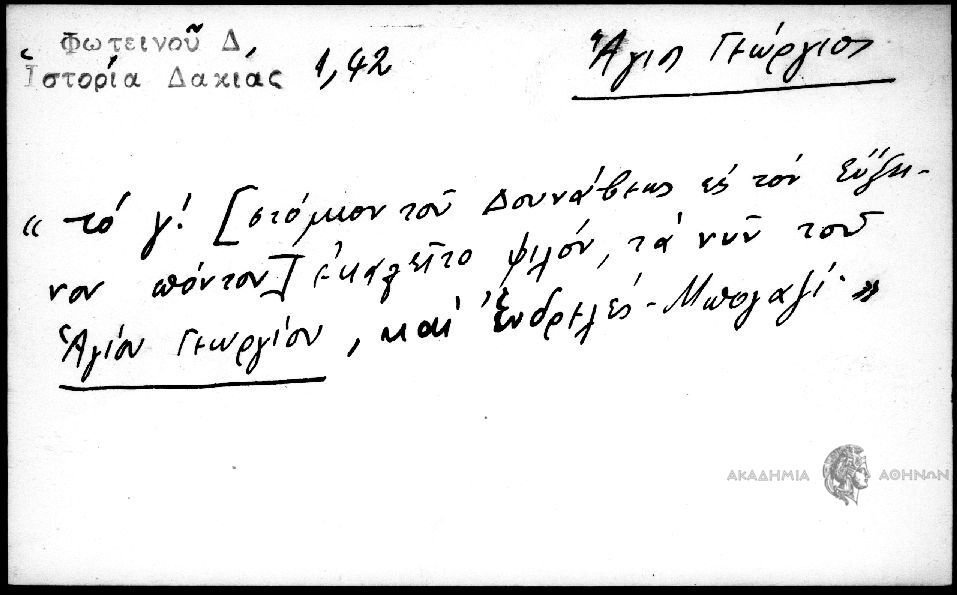 Φωτεινοῦ Δ,
Ἱστορία Δακιάς 1,42
Ἅγιος Γεώργιος
« τό γ! [στόμιον τοῦ Δουνάβεως εἰς τόν Εὔξει-
νον πόντον] ἐκαλεῖτο ψιλόν, τά νῦν τοῦ
Ἁγίου Γεωργίου, καί Ἐνδρελές-Μπογαζί. »
ΑΚΑΔΗΜΙΑ ΑΘΗΝΩΝ